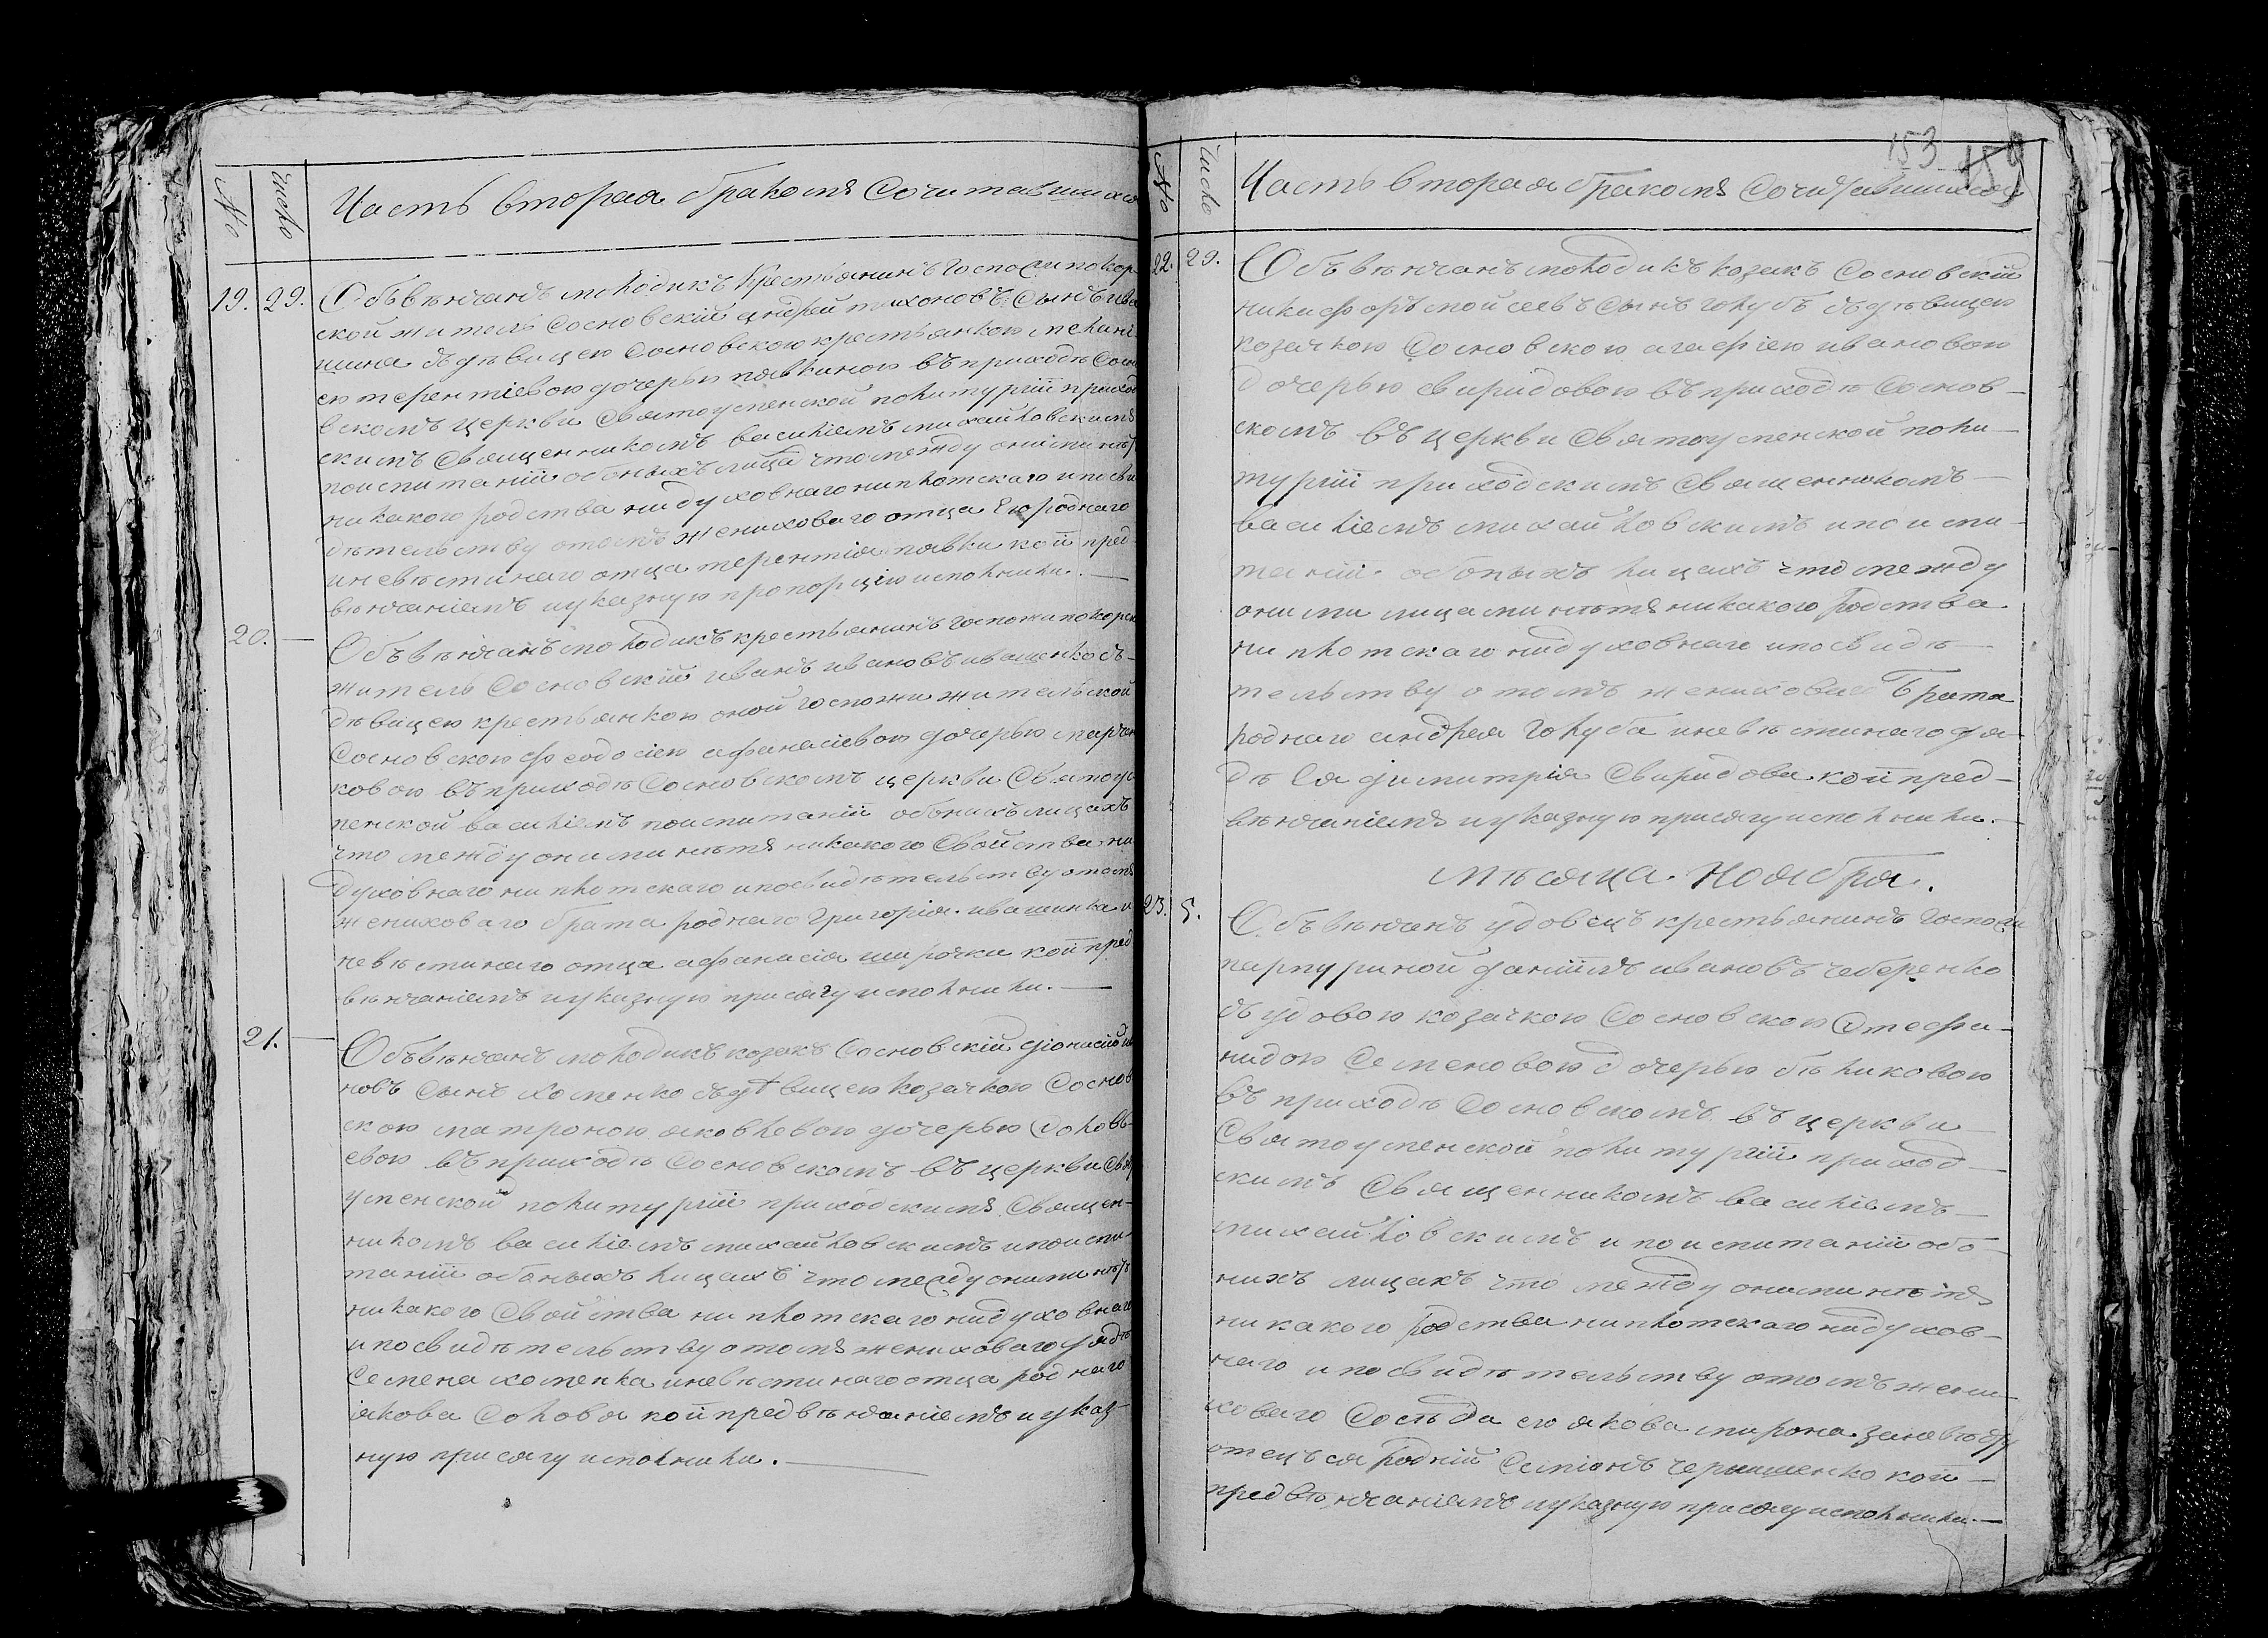 №
число
Часть вторая бракомъ сочитавшихся
19. 29. Обвѣнчанъ молодикъ крестьянинъ госпожи покор
ской житель Сосновскій андрей тихоновъ сынъ ива
шина съ дѣвицею Сосновскою крестьянкою меланi
ею терентіевою дочерью павкиною въ приходѣ Сосно
вскомъ церкви Святоуспенской политургіи приход
скимъ Священникомъ василіемъ михайловскимъ
поиспитаніи обоныхъ лицахъ что между оними нѣтъ
никакого родства ни духовнаго ни плотскаго и посви
дѣтельству отомъ жениховаго отца его роднаго
и невѣстинаго отца терентія павки кои пред
вѣнчаніемъ и указную пропорцію исполнили.—
20. — Объвѣнчанъ молодикъ крестьянинъ госпожи покорск
житель Сосновскій иванъ ивановъ ивашенко съ
дѣвицею крестьянкою оной госпожи жителькой
Сосновскою феодосіею афанасіевою дочерью марчен
ковою въ приходѣ Сосновскомъ церкви Святоус
пенской василіемъ поиспитаніи обонихъ лицахъ
что между оними нѣтъ никакого свойства ни
духовнаго ни плотскаго и посвидѣтельству отомъ
жениховаго брата роднаго григорія ивашинка и
невѣстинаго отца афанасія широчки кои пред
вѣнчаніемъ и указную присягу исполнили.—
21. — Объвѣнчанъ молодикъ козакъ Сосновскій діонисій ива
новъ сынъ хоменко съ дѣвицею козачкою Соснов
скою матроною яковлевою дочерью Соловь
евою въ приходѣ Сосновскомъ въ церкви Свято
успенской политургіи приходскимъ Священ-
никомъ василіемъ михайловскимъ и поиспи
таніи обоныхъ лицахъ что между оними нѣтъ
никакого Свойства ни плотскаго ни духовнаго
и посвидѣтельству отомъ жениховаго дядѣ
Семена хоменка и невѣстинаго отца роднаго
якова Соловя кои предвѣнчаніемъ и указ-
ную присягу исполнили.—
153 159
№
число
Часть вторая бракомъ сочитавшихся
22. 29. Объвѣнчанъ молодикъ козакъ Сосновскій
никифоръ мойсеевъ сынъ голубъ съ дѣвицею
козачкою Сосновскою агафіею ивановою
дочерью свиридовою въ приходѣ Соснов-
скомъ въ церкви Святоуспенской поли-
тургіи приходскимъ Священникомъ—
василіемъ михайловскимъ и поиспи-
таніи обоныхъ лицахъ что между
оними лицами нѣтъ никакого родства
ни плотскаго ни духовнаго и посвидѣ-
тельству о томъ жениховаго Брата
роднаго андрея Голуба и невѣстинаго дя-
дѣ Ея димитрія Свиридова кои пред-
вѣнчаніемъ и указную присягу исполнили.—
мѣсяца Ноября.
23. 5. Объвѣнчанъ удовецъ крестьянинъ госпожи
парпуриной даніилъ ивановъ чеберенко
съ удовою козачкою Сосновскою Стефа-
нидою Семеновою дочерью бѣликовою
въ приходѣ Сосновскомъ въ церкви
Святоуспенской политургіи приход-
скимъ Священникомъ василіемъ—
михайловскимъ и поиспитаніи обо-
нихъ лицахъ что между оними нѣтъ
никакого родства ни плотскаго ни духов-
наго и посвидѣтельству отомъ жени-
ховаго Сосѣда его якова мирона
отецъ ея родній кои—
предвѣнчаніемъ и указную присягу исполнили.—